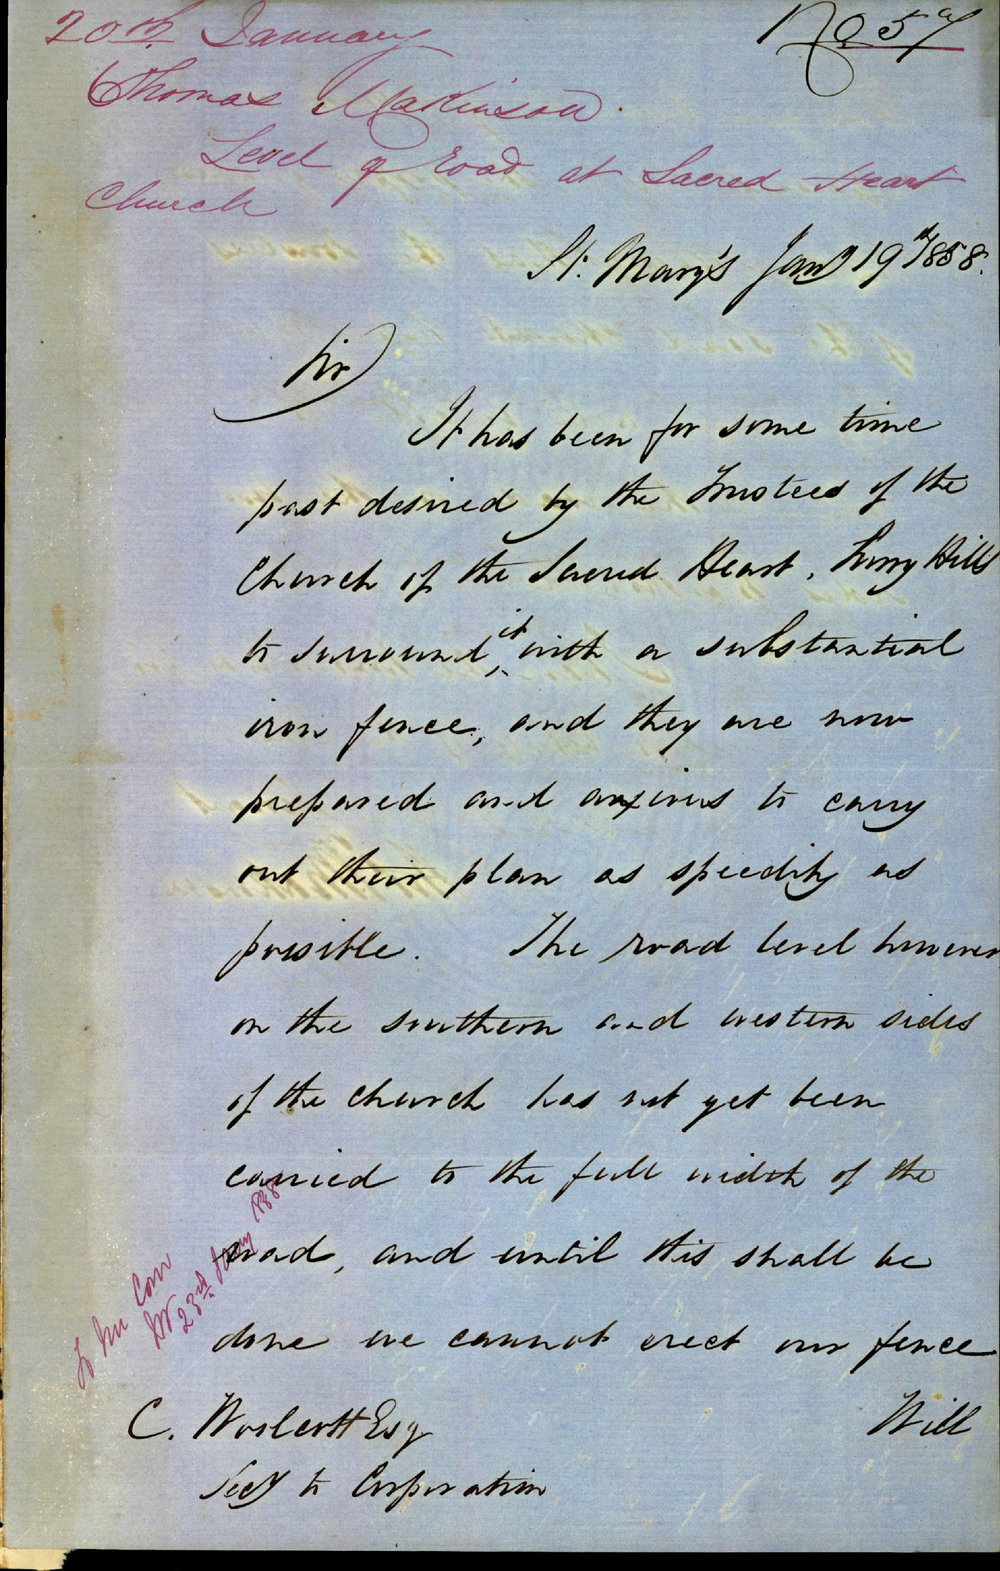 20th January
No 57
Thomas Makinson
Level of Road at Sacred Heart
Church
St. Mary's Jany 19th 1858.
Sir
It has been for some time
past desired by the Trustees of the
Church of the Sacred Heart, Surry Hills
to surround it with a substantial
iron fence, and they are now
prepared and anxious to carry
out their plan as speedily as
possible. The road level however
on the southern and western sides
of the church has not yet been
carried to the full width of the
road, and until this shall be
done we cannot erect our fence
Will
23rd Jany 1858
C. Woolcott Esq
Secy to Corporation